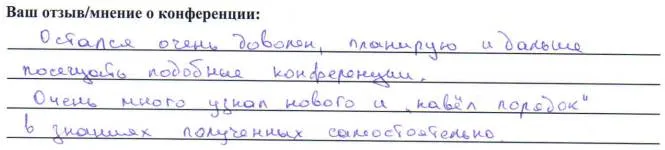 Ваш отзыв/мнение о конференции:
Остался очень доволен, планирую и дальше
посещать подобные конференции.
Очень много узнал нового и „навёл порядок"
в знаниях полученных самостоятельно.